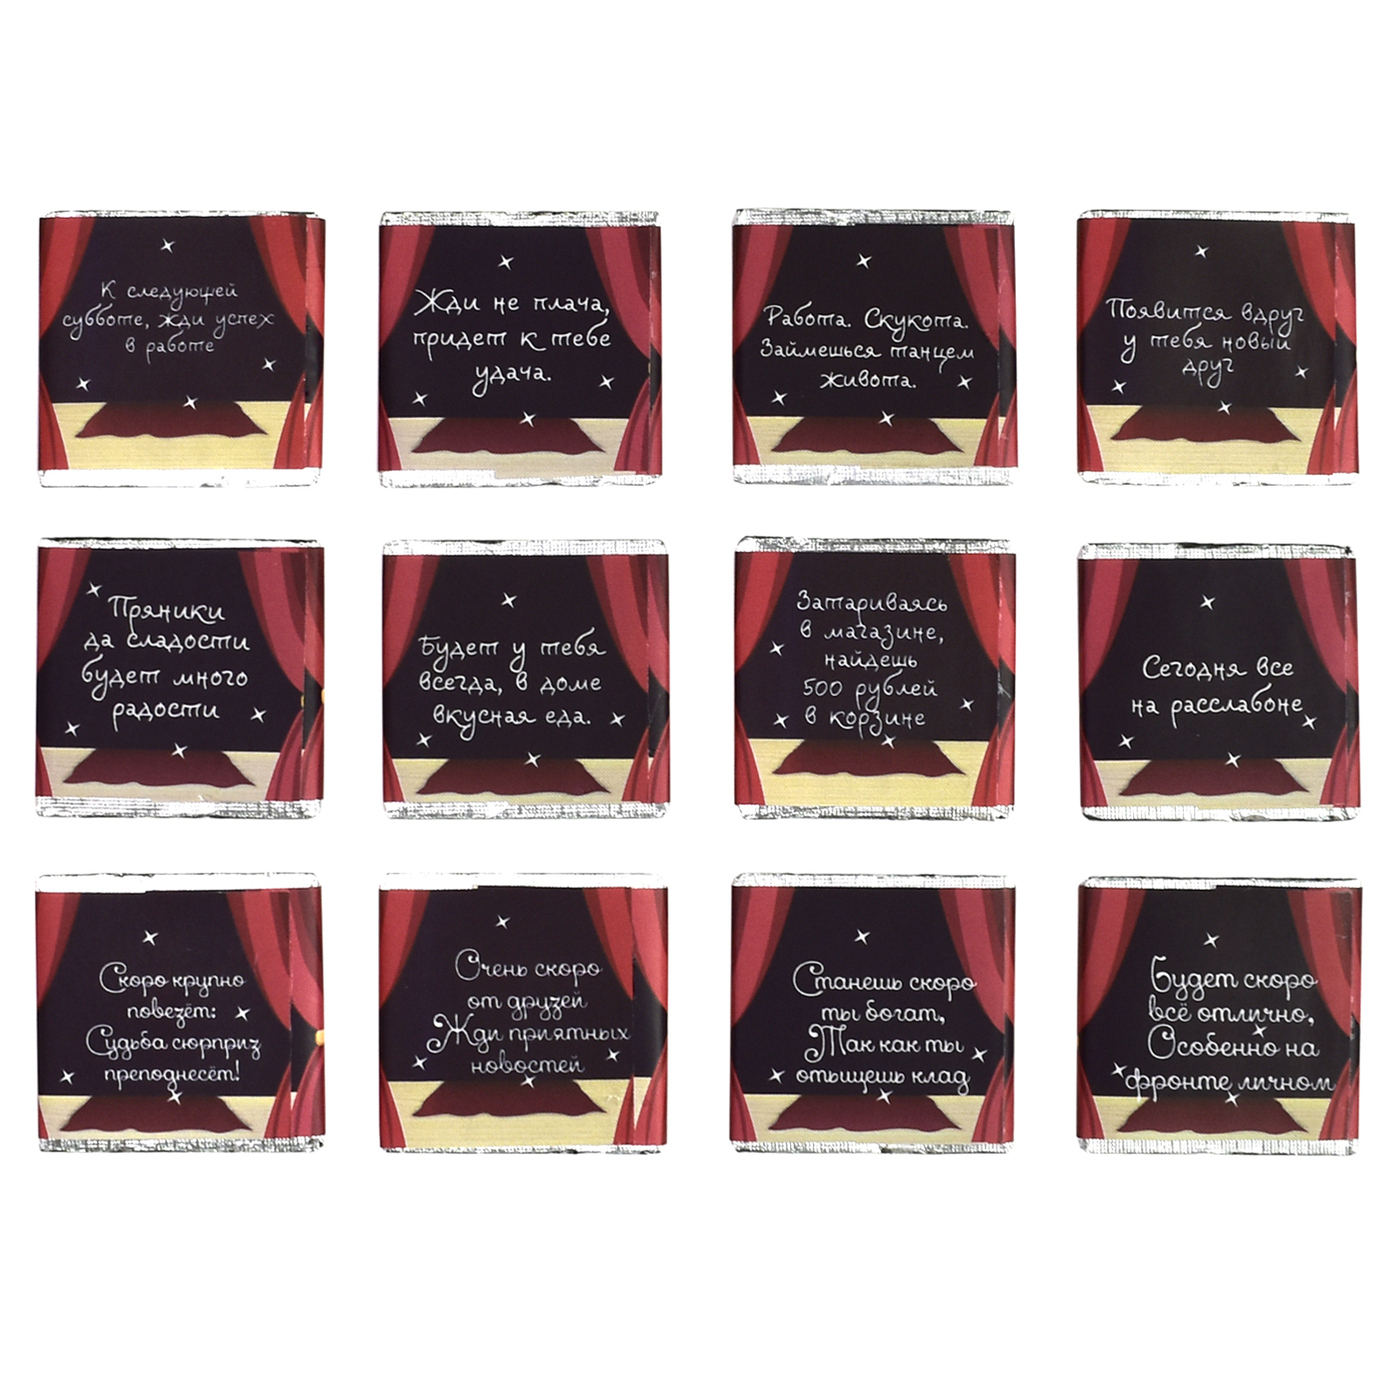 К следующей
субботе, жди успех
в работе
Жди не плача,
придет к тебе
удача.
Работа. Скукота.
Займешься танцем
живота.
Появится вдруг
у тебя новый
друг
Пряники
да сладости
будет много
радости
Будет у тебя
всегда, в доме
вкусная еда.
Затариваясь
в магазине,
найдешь
500 рублей
в корзине
Сегодня все
на расслабоне
Скоро крупно
повезёт:
Судьба сюрприз
преподнесёт!
Очень скоро
от друзей
Жди приятных
новостей
Станешь скоро
ты богат,
Так как ты
отыщешь клад
Будет скоро
всё отлично,
Особенно на
фронте личном